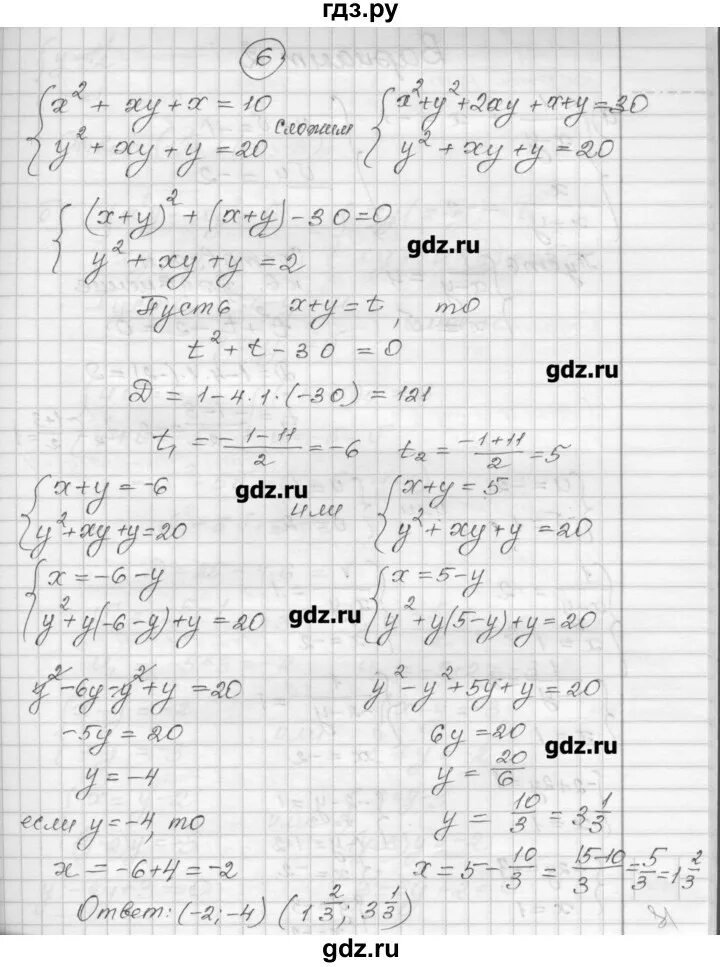 гдз.ру
6
{ x² + xy + x = 10
y² + xy + y = 20
сложим
{ x² + y² + 2xy + x + y = 30
y² + xy + y = 20
{ (x+y)² + (x+y) - 30 = 0
y² + xy + y = 2
gdz.ru
Пусть x+y = t, то
t² + t - 30 = 0
gdz.ru
D = 1 - 4·1·(-30) = 121
t₁ = (-1-11)/2 = -6 t₂ = (-1+11)/2 = 5
{ x+y = -6
y² + xy + y = 20
gdz.ru
или
{ x+y = 5
y² + xy + y = 20
{ x = -6 - y
y² + y(-6-y) + y = 20
gdz.ru
{ x = 5 - y
y² + y(5-y) + y = 20
y² - 6y - y² + y = 20
-5y = 20
y = -4
если y = -4, то
x = -6 + 4 = -2
y² - y² + 5y + y = 20
6y = 20
gdz.ru
y = 20/6
y = 10/3 = 3 1/3
x = 5 - 10/3 = (15-10)/3 = 5/3 = 1 2/3
Ответ: (-2; -4) (1 2/3; 3 1/3)
gdz.ru